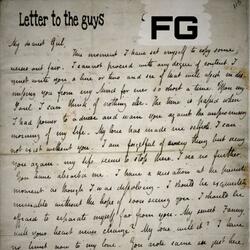 Letter to the guys
FG
My dearest Girl,
This moment I have set myself to copy some
verses out fair. I cannot proceed with any degree of content. I
must write you a line or two and see if that will assist in dis-
missing you from my Mind for ever so short a time. Upon my
Soul I can think of nothing else. The time is passed when
I had power to advise and warn you against the unpromising
morning of my Life. My love has made me selfish. I can
not exist without you. I am forgetful of every thing but seeing
you again. my Life seems to stop there. I see no further.
You have absorb'd me. I have a sensation at the present
moment as though I was dissolving. I should be exquisitely
miserable without the hope of soon seeing you. I should be
afraid to separate myself far from you. My sweet Fanny
will your heart never change? My love will it? I have
no limit now to my love. You note came in just here